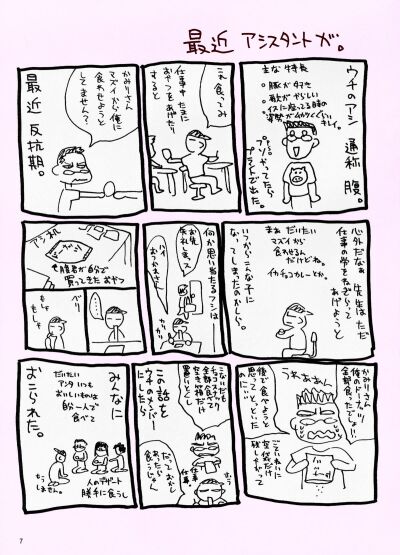 最近 アシスタントが。
ウチのアシ
通称 腹。
主な特長
・豚が好き
・歌がやらしい
・イスに座ってる時の
姿勢が
くらい
キレイ。
これ 食ってみ
仕事中 たまに
おやつをあげたり
すると
かみりさん
マズイから俺に
食わせようと
してません？
最近 反抗期。
心外だなぁ 先生はただ
仕事の労をねぎらって
あげようと
まぁ だいたい
マズイから
食わせるん
だけどね。
イカチョコカレーとか。
いつからこんな子に
なってしまったのかしら。
何か思い当たるフシは
お先
失礼しまス
ハイ
おつかれさん
アシ机
↑腹君が自分で
買ってきたおやつ
べり
もしゃ
もしゃ
うわぁぁん
かみりさん
俺のドーナッツ
全部食ったでしょ!!
後で食べようと
思ってとって
おいたのに…
ていねいに
空袋だけ
残しやがって
こないだも
チョコレート
全部食べて
空き箱だけ
置いといて
だって
おかし
あったら
食うじゃん
仕事
この話を
ウチのメンバー
にしたら
みんなに
おこられた。
だいたい
アンタ いつも
おいしいものは
自分一人で
食べて
人のデザート
勝手に食うし
もう
しません。
7